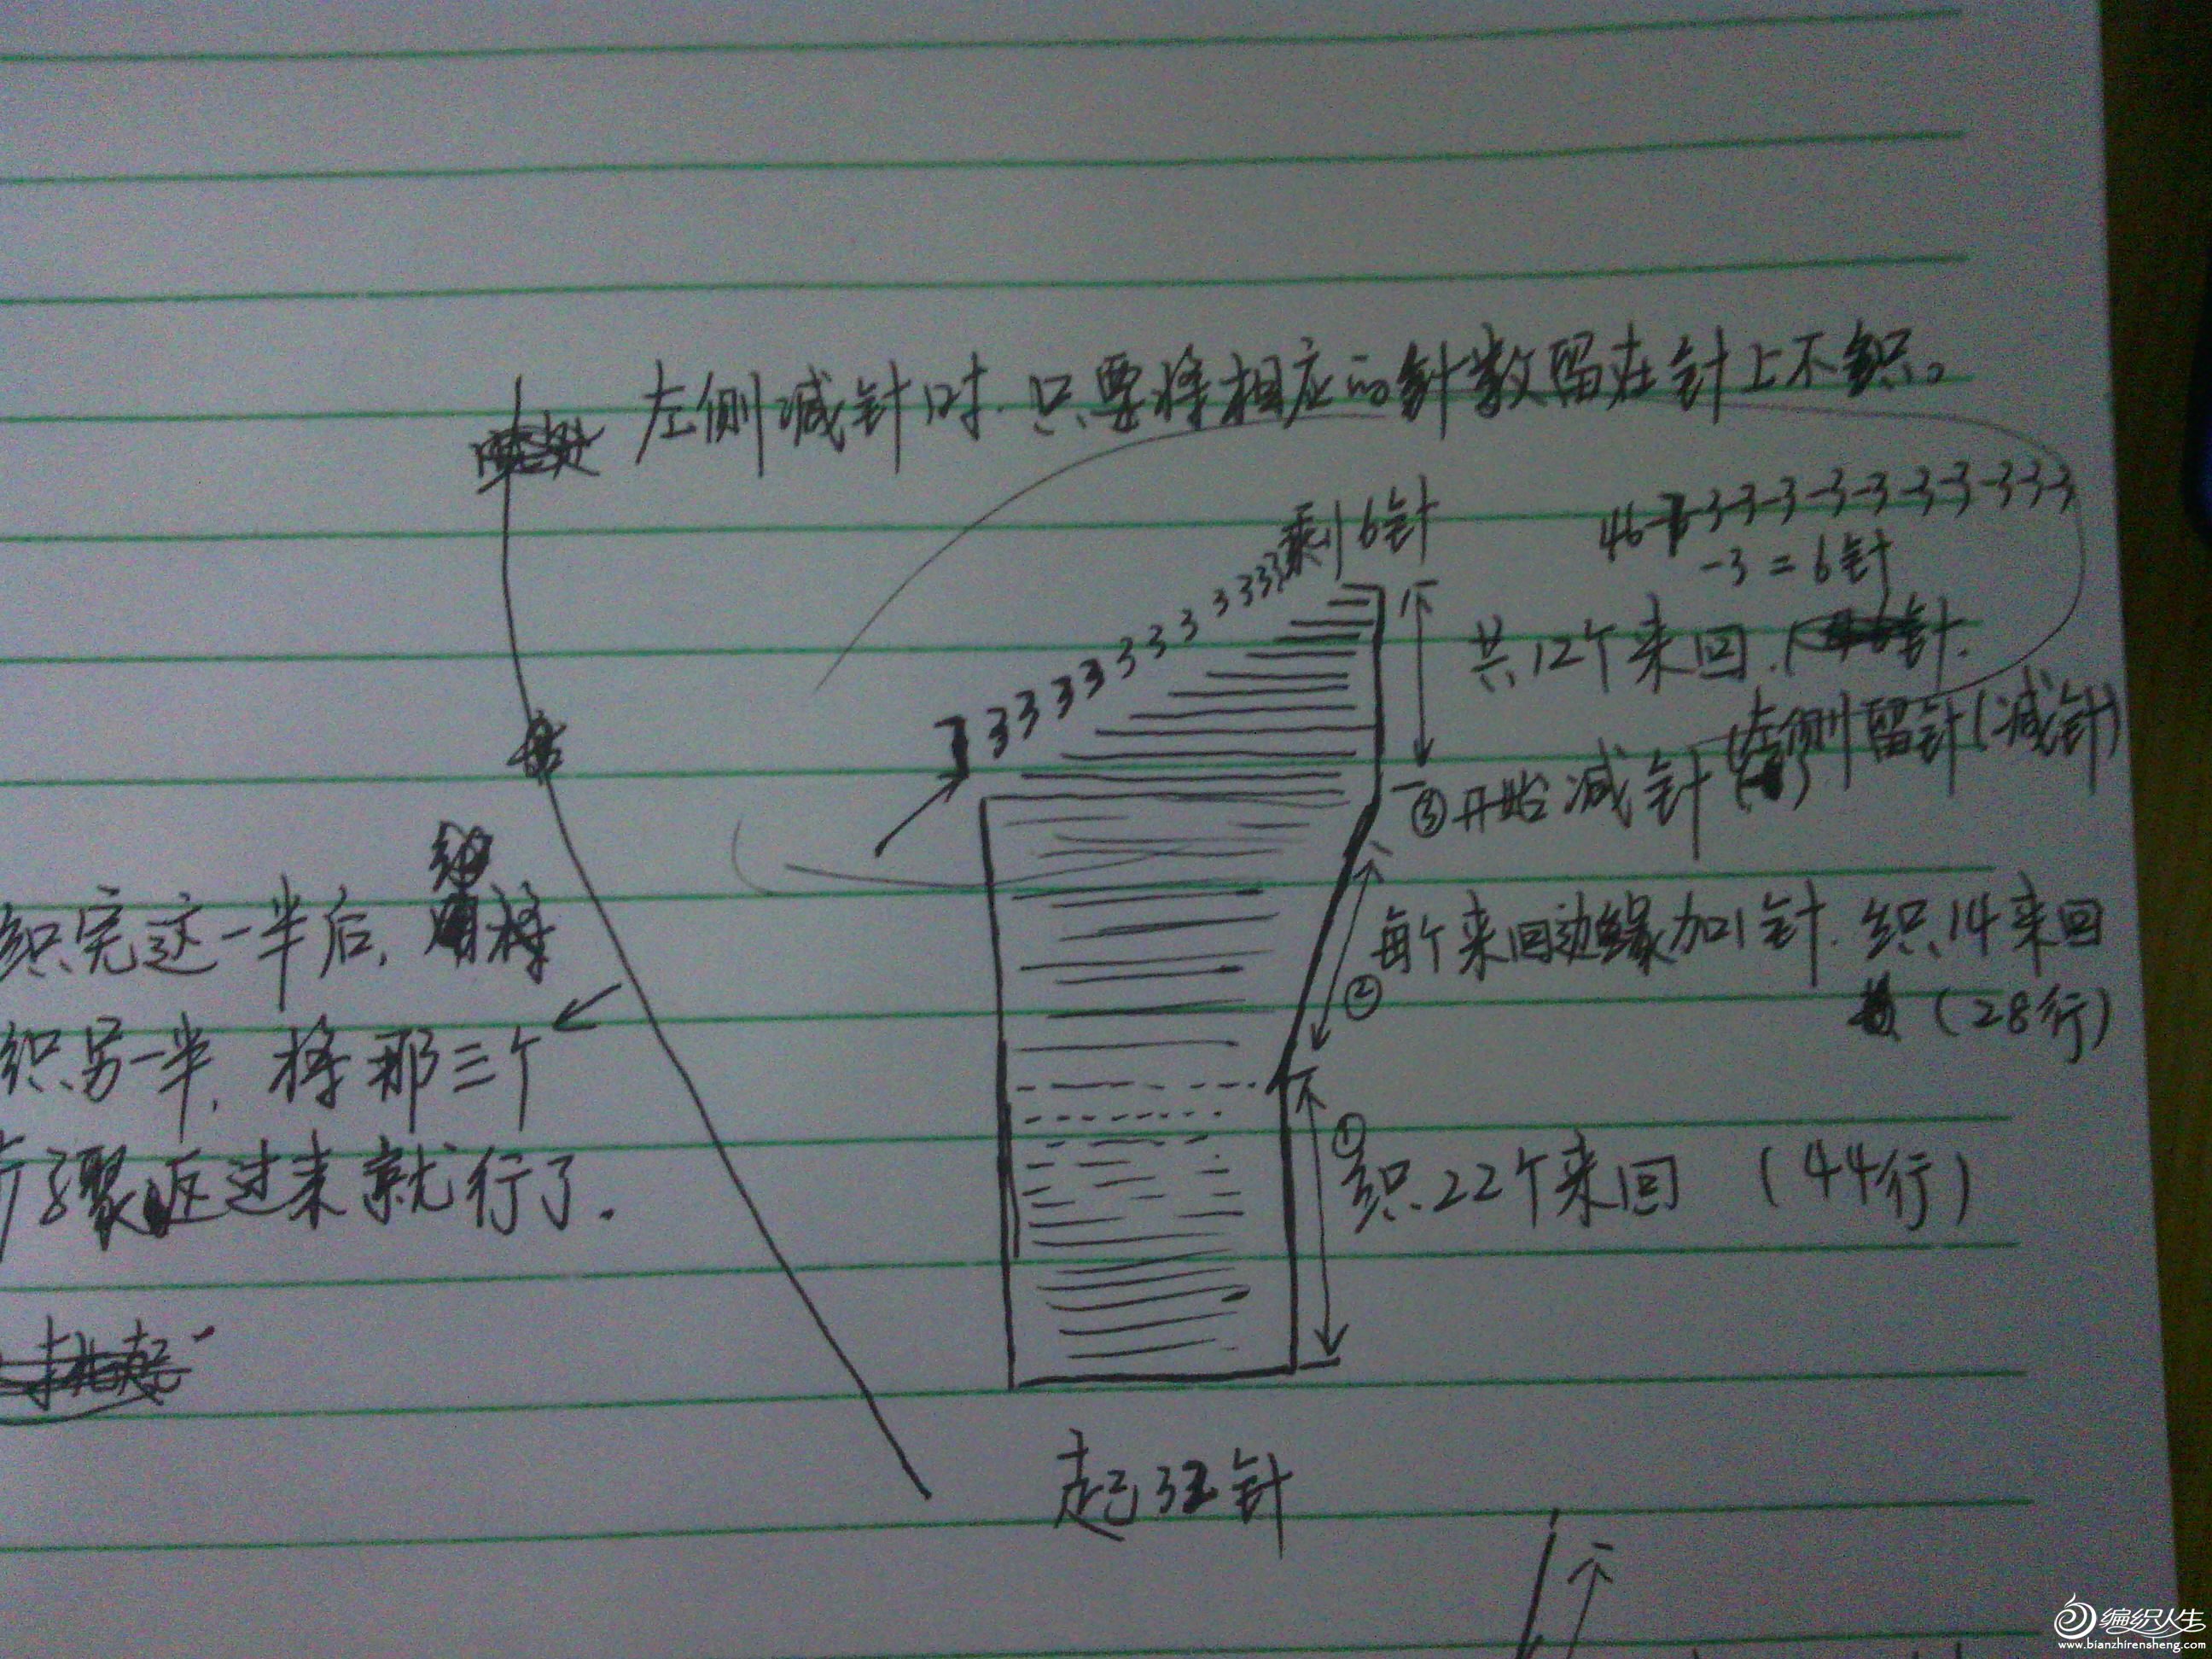 左侧减针时.只要将相应的针数留在针上不织。
剩6针
3 3 3 3 3 3 3 3 3 3 3
46-7-3-3-3-3-3-3-3-3-3-3
-3=6针
共12个来回.
③开始减针(左侧留针(减针)
每个来回边缘加1针.织14来回
②
(28行)
①
织22个来回 (44行)
起32针
织完这一半后,
织另一半,将那三个
步骤返过来就行了.
编织人生
www.bianzhirensheng.com